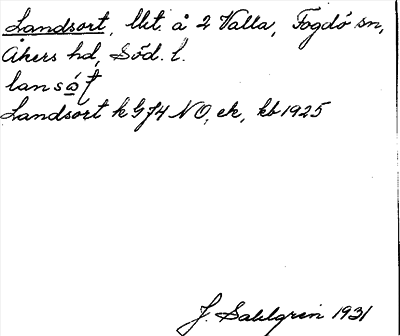 Landsort, lht. å 2 Valla, Fogdö sn,
Åkers hd, Söd. l.
Landsort k G J4 NO, ek, kb 1925
J. Sahlgren 1931